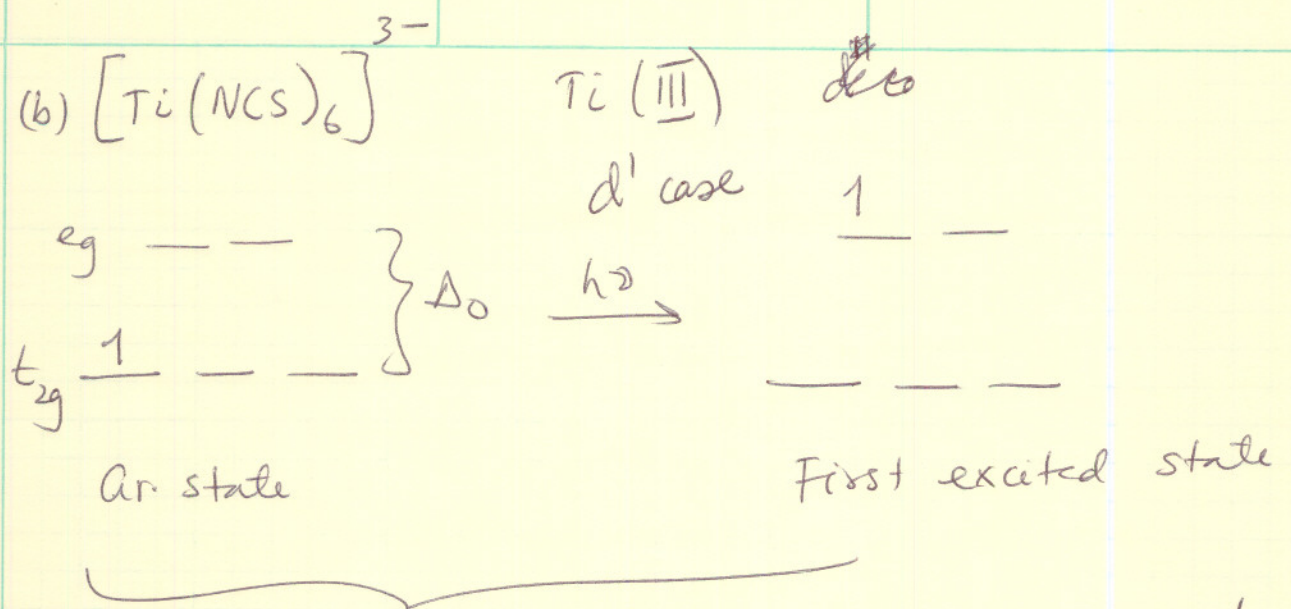 (b) [Ti(NCS)₆]³⁻ Ti (III)
d' case
1
eg — — } Δo hν → — —
1
t2g — — — — — —
Gr. state First excited state